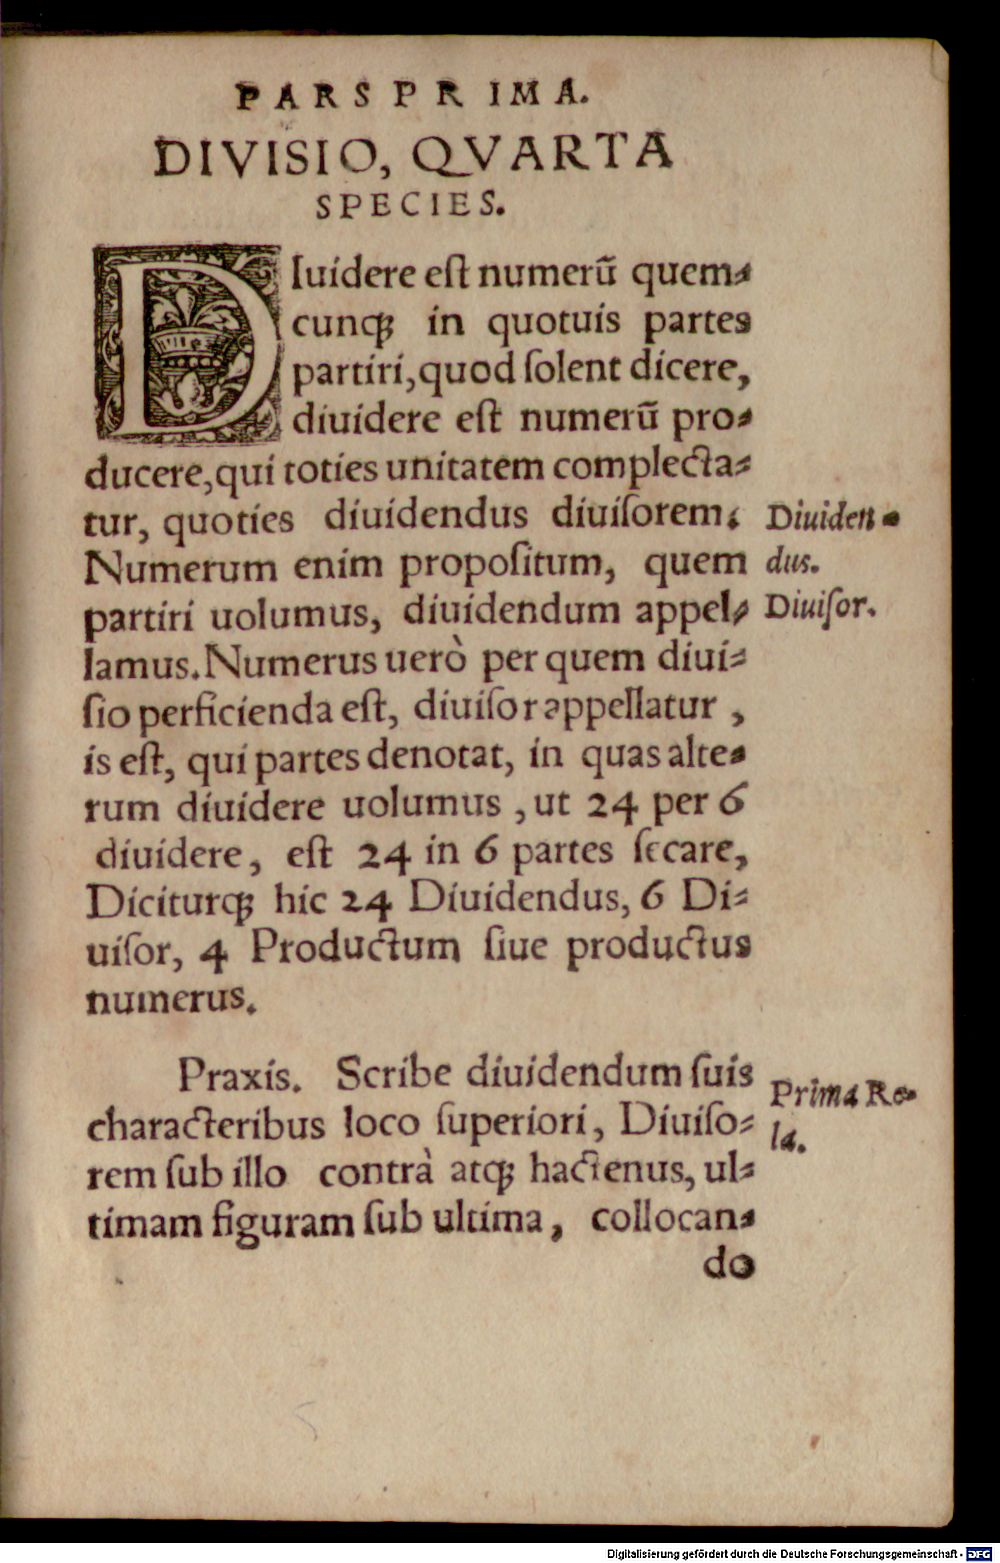 PARS PRIMA.
DIVISIO, QVARTA
SPECIES.
DIuidere est numerũ quem-
cunq; in quotuis partes
partiri, quod solent dicere,
diuidere est numerũ pro-
ducere, qui toties unitatem complecta-
tur, quoties diuidendus diuisorem.
Numerum enim propositum, quem
partiri uolumus, diuidendum appel-
lamus. Numerus uerò per quem diui-
sio perficienda est, diuisor appellatur,
is est, qui partes denotat, in quas alte-
rum diuidere uolumus, ut 24 per 6
diuidere, est 24 in 6 partes secare,
Diciturq; hic 24 Diuidendus, 6 Di-
uisor, 4 Productum siue productus
numerus.
Diuiden-
dus.
Diuisor.
Praxis. Scribe diuidendum suis
characteribus loco superiori, Diuiso-
rem sub illo contrà atq; hactenus, ul-
timam figuram sub ultima, collocan-
do
Prima Re-
la.
Digitalisierung gefördert durch die Deutsche Forschungsgemeinschaft - DFG